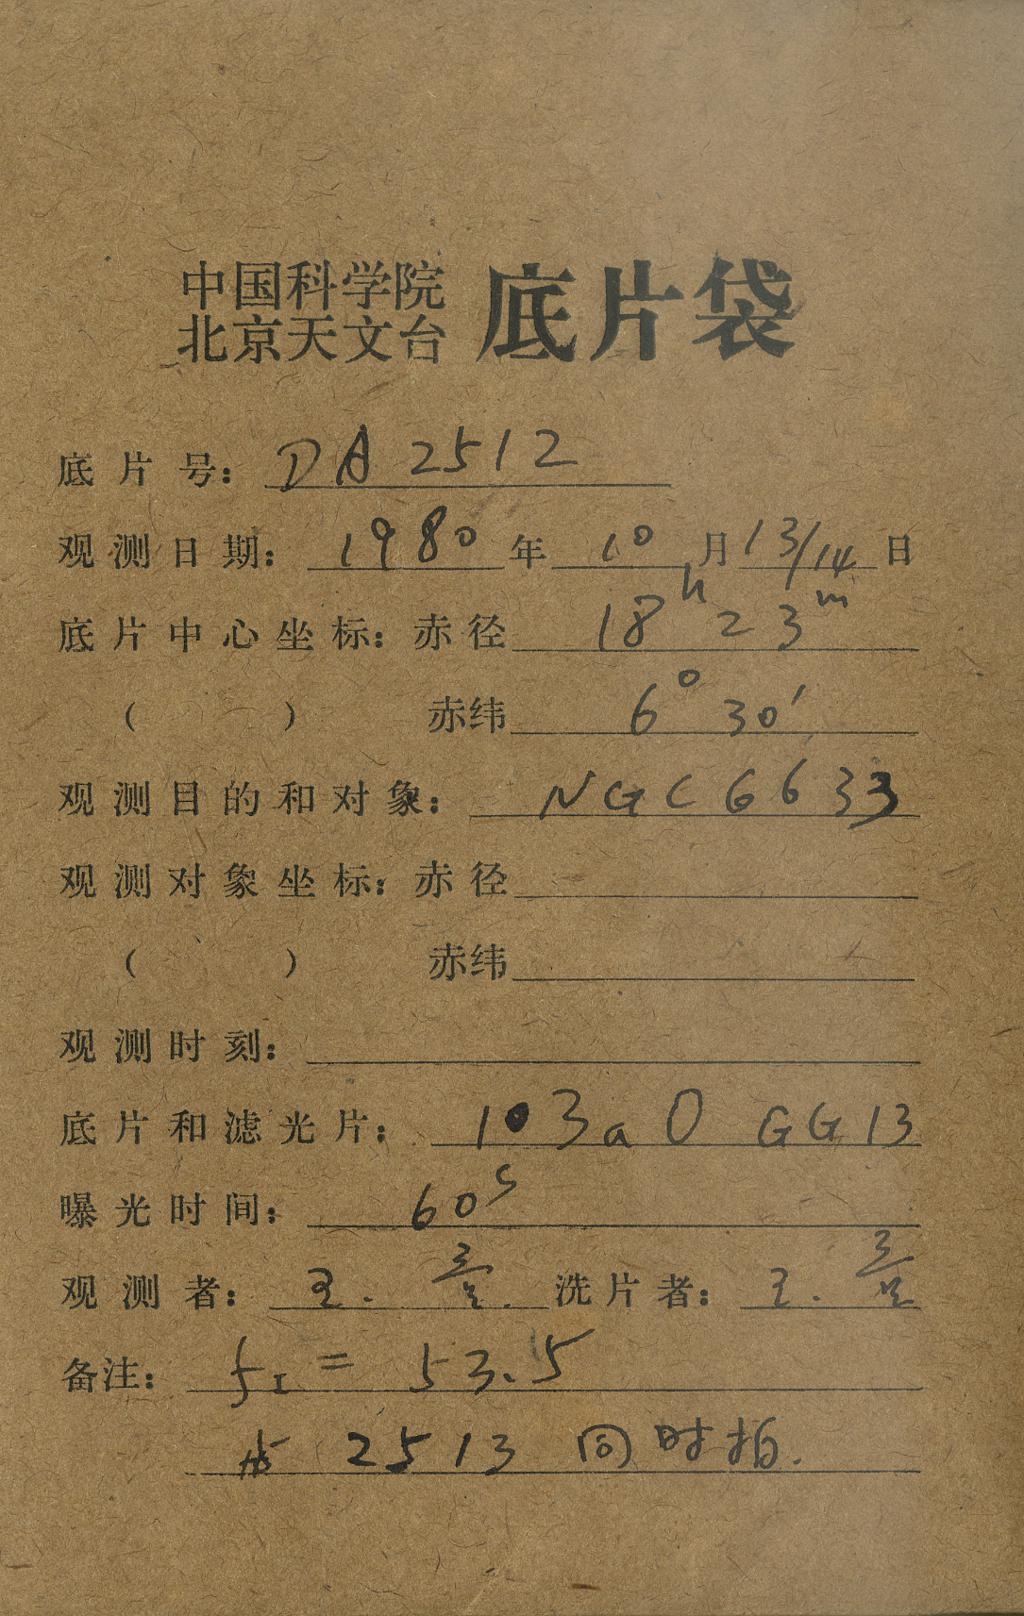 中国科学院
北京天文台
底片袋
底片号: DA 2512
观测日期: 1980年 10月 13/14日
底片中心坐标: 赤径 18h 23m
( ) 赤纬 6° 30′
观测目的和对象: NGC 6633
观测对象坐标: 赤径
( ) 赤纬
观测时刻:
底片和滤光片: 103aO GG13
曝光时间: 60s
观测者: 王. 洗片者: 王.
备注: f_I = 53.5
2513 同时拍.